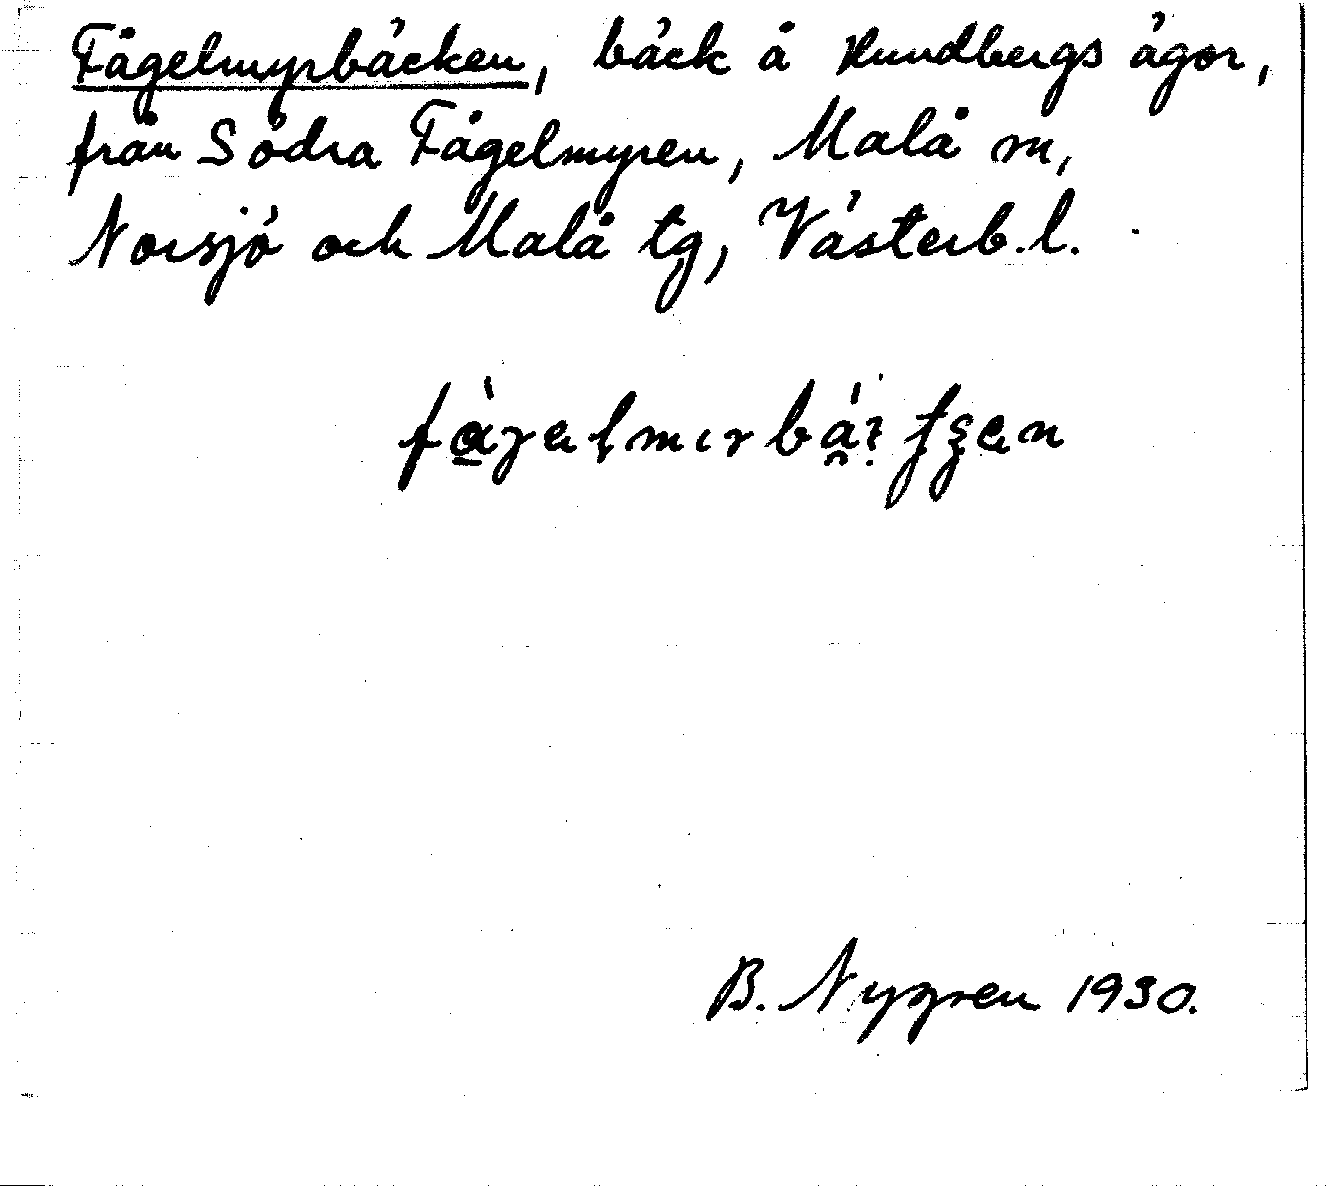 Fågelmyrbäcken, bäck å Hundbergs ägor,
från Södra Fågelmyren, Malå sn,
Norsjö och Malå tg, Västerb.l.
B. Nygren 1930.